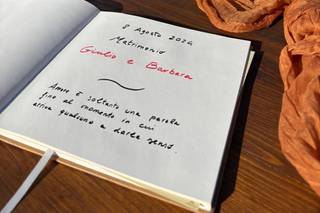 8 Agosto 2024
Matrimonio
Giulio e Barbara
Amore è soltanto una parola
fino al momento in cui
arriva qualcuno a darle senso.